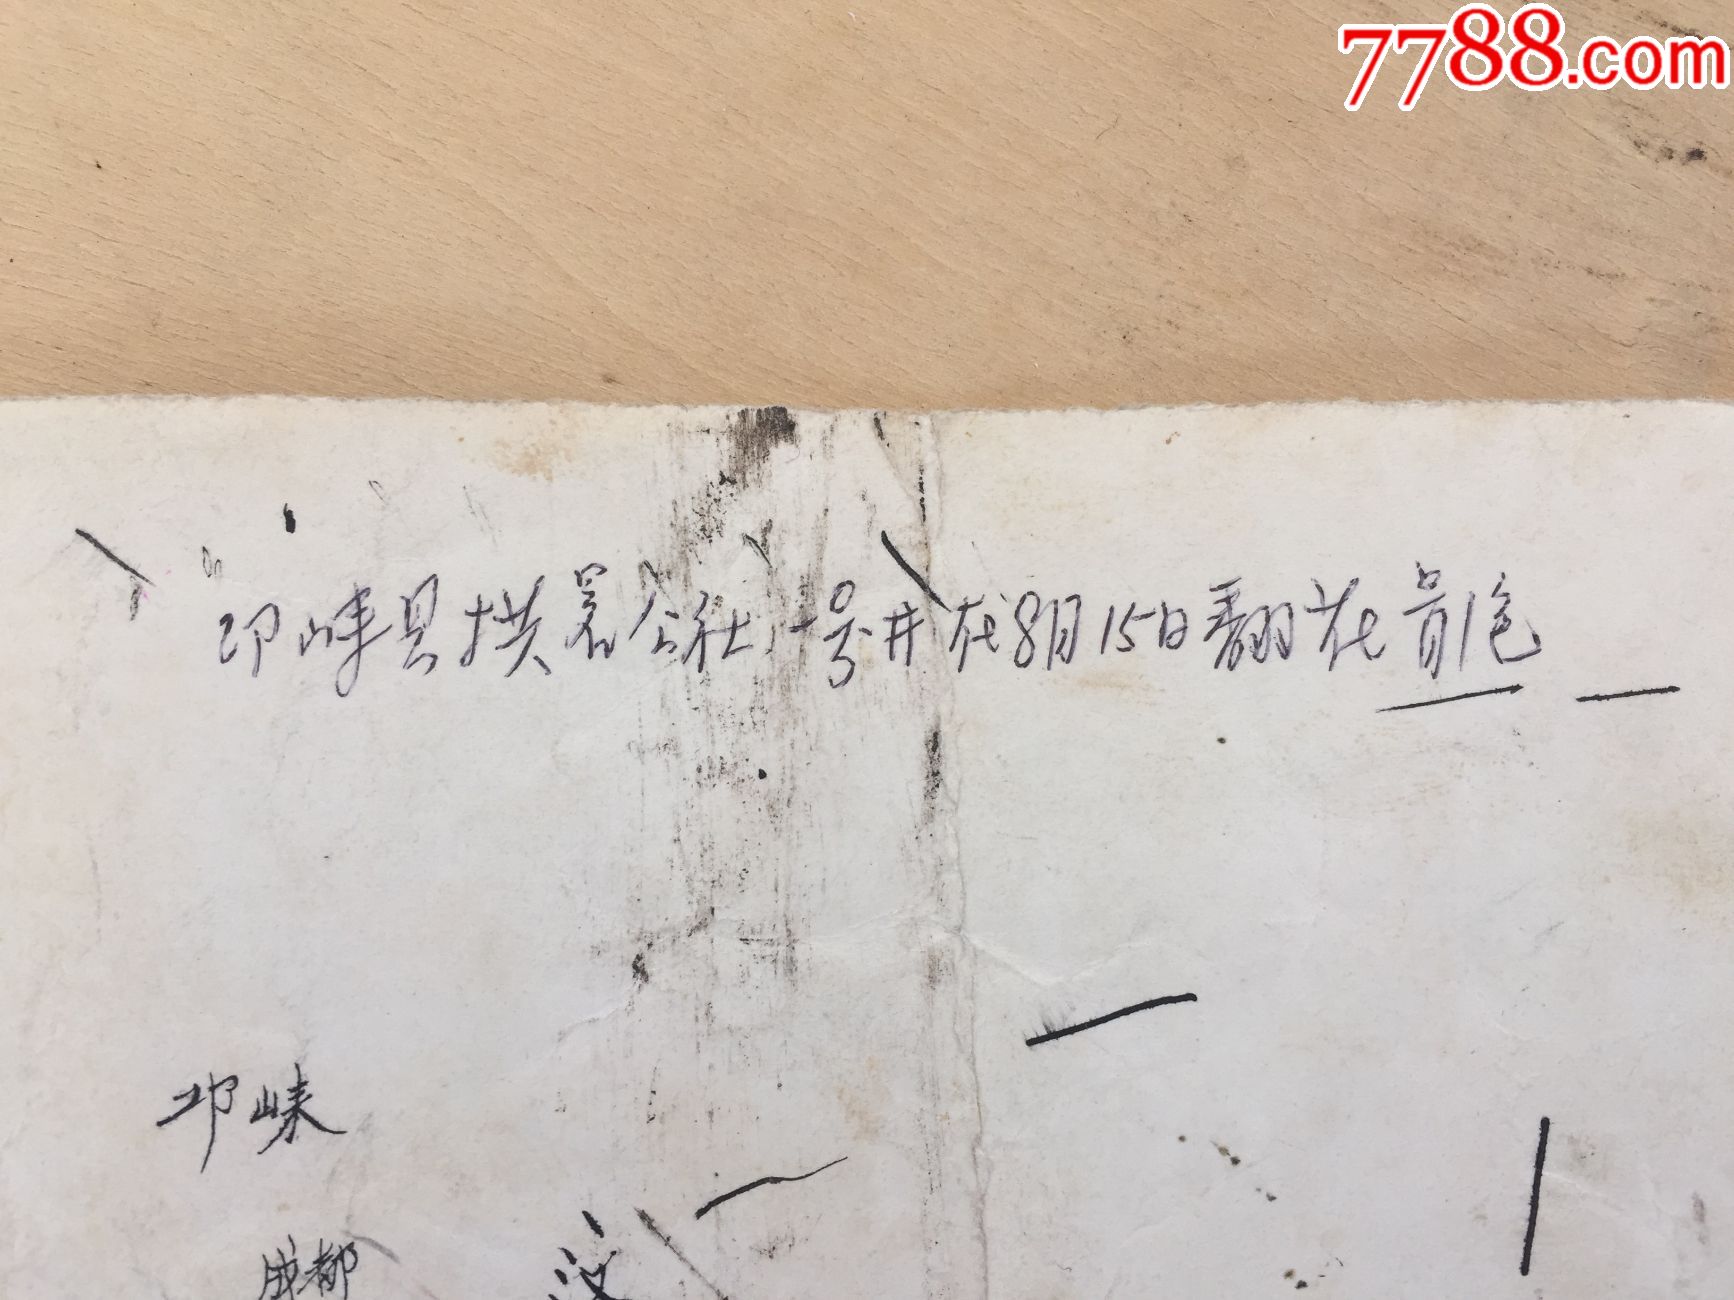 7788.com
邛崃县拱署公社一号井在8月15日翻花冒泡
邛崃
成都